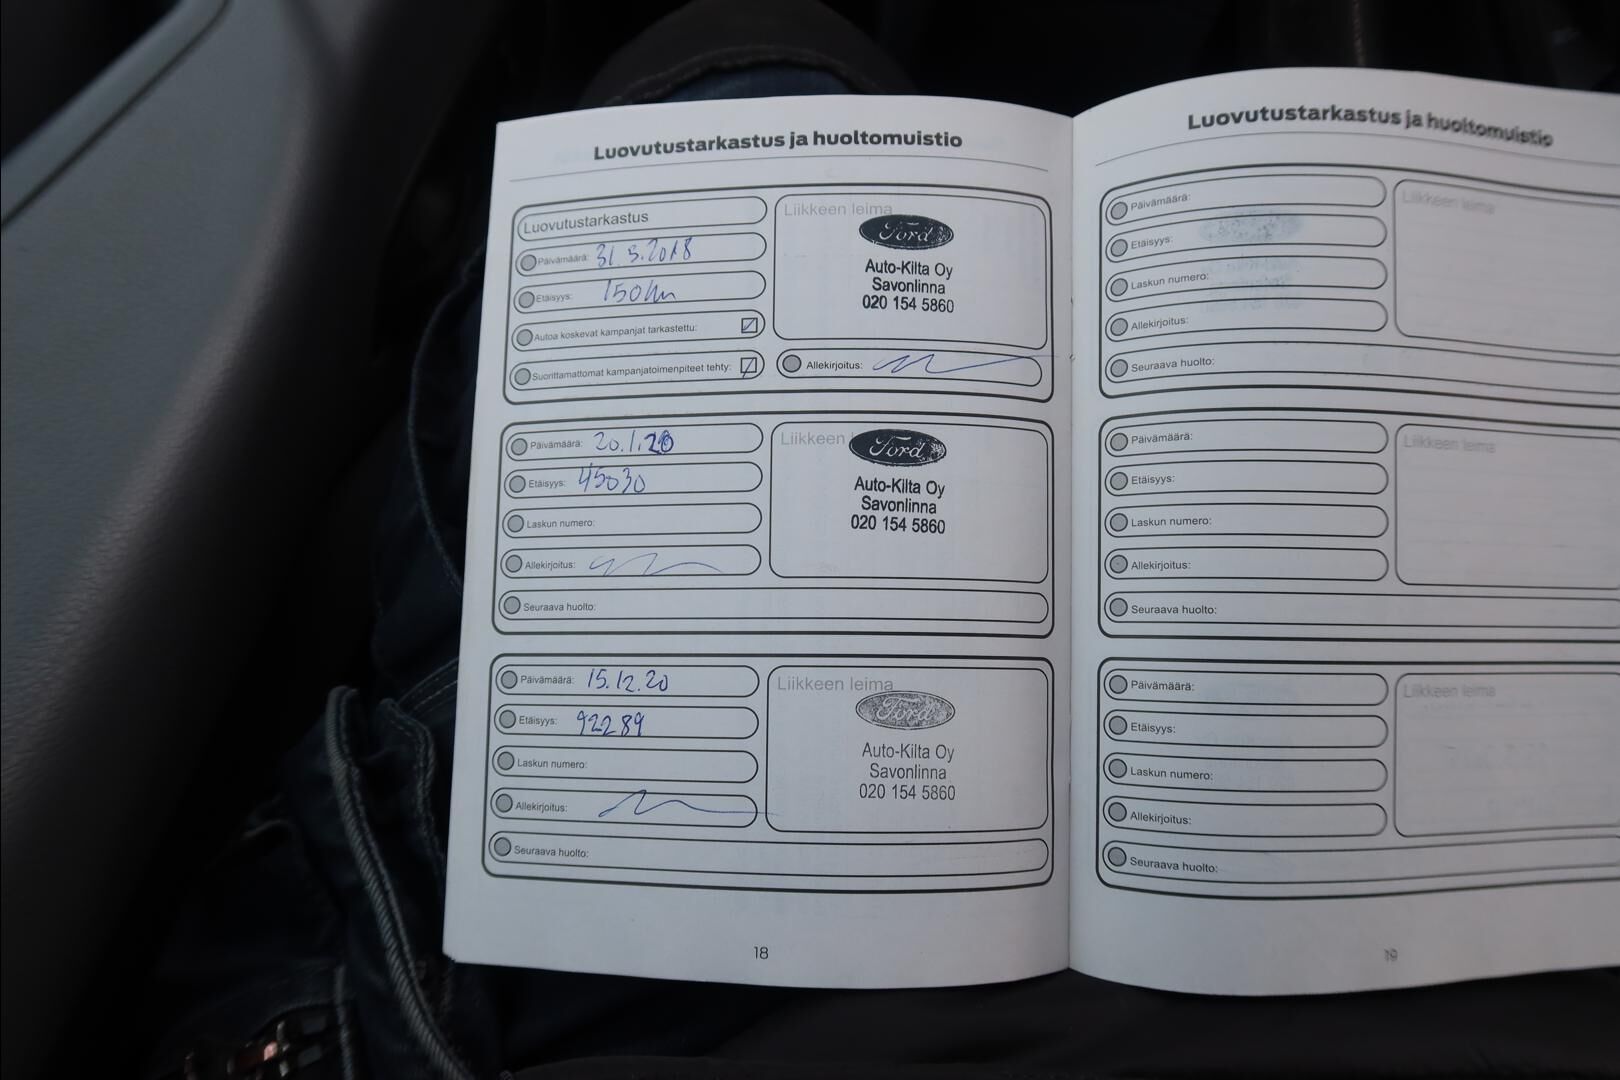 Luovutustarkastus ja huoltomuistio
Luovutustarkastus
Päivämäärä: 31.5.2018
Etäisyys: 150 km
Autoa koskevat kampanjat tarkastettu:
Suorittamattomat kampanjatoimenpiteet tehty:
Liikkeen leima
Ford
Auto-Kilta Oy
Savonlinna
020 154 5860
Allekirjoitus:
Päivämäärä: 20.1.20
Etäisyys: 45030
Laskun numero:
Allekirjoitus:
Seuraava huolto:
Liikkeen
Ford
Auto-Kilta Oy
Savonlinna
020 154 5860
Päivämäärä: 15.12.20
Etäisyys: 92289
Laskun numero:
Allekirjoitus:
Seuraava huolto:
Liikkeen leima
Ford
Auto-Kilta Oy
Savonlinna
020 154 5860
18
Luovutustarkastus ja huoltomuistio
Päivämäärä:
Etäisyys:
Laskun numero:
Allekirjoitus:
Seuraava huolto:
Liikkeen leima
Päivämäärä:
Etäisyys:
Laskun numero:
Allekirjoitus:
Seuraava huolto:
Liikkeen leima
Päivämäärä:
Etäisyys:
Laskun numero:
Allekirjoitus:
Seuraava huolto:
Liikkeen leima
19